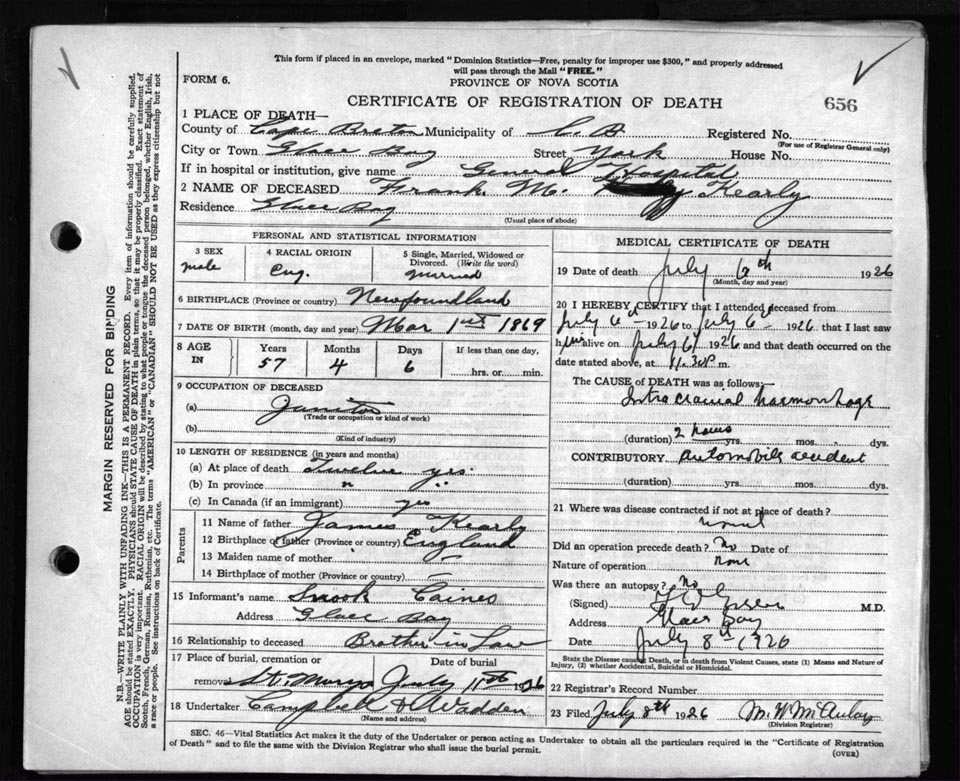 This form if placed in an envelope, marked "Dominion Statistics—Free, penalty for improper use $300," and properly addressed
will pass through the Mail "FREE."
FORM 6.
PROVINCE OF NOVA SCOTIA
CERTIFICATE OF REGISTRATION OF DEATH
656
1 PLACE OF DEATH—
County of Cape Breton Municipality of C. B. Registered No.
(For use of Registrar General only)
City or Town Glace Bay Street York House No.
If in hospital or institution, give name General Hospital
2 NAME OF DECEASED Frank M. Kearly
Residence Glace Bay
(Usual place of abode)
PERSONAL AND STATISTICAL INFORMATION
3 SEX 4 RACIAL ORIGIN 5 Single, Married, Widowed or
Divorced. (Write the word)
male Eng. married
6 BIRTHPLACE (Province or country) Newfoundland
7 DATE OF BIRTH (month, day and year) Mar 1st 1869
8 AGE IN Years Months Days If less than one day,
57 4 6 hrs. or min.
9 OCCUPATION OF DECEASED
(a) Janitor
(Trade or occupation or kind of work)
(b)
(Kind of industry)
10 LENGTH OF RESIDENCE (in years and months)
(a) At place of death Twelve yrs.
(b) In province " "
(c) In Canada (if an immigrant) yes
Parents
11 Name of father James Kearly
12 Birthplace of father (Province or country) England
13 Maiden name of mother
14 Birthplace of mother (Province or country) —
15 Informant's name Snook Caines
Address Glace Bay
16 Relationship to deceased Brother in Law
17 Place of burial, cremation or removal Date of burial
St. Marys July 11th 1926
18 Undertaker Campbell & Wadden
(Name and address)
MEDICAL CERTIFICATE OF DEATH
19 Date of death July 6th 1926
(Month, day and year)
20 I HEREBY CERTIFY that I attended deceased from
July 6 1926 to July 6 1926 that I last saw
him alive on July 6 1926 and that death occurred on the
date stated above, at m.
The CAUSE OF DEATH was as follows:—
Intracranial haemorrhage
(duration) 2 hours yrs. mos. dys.
CONTRIBUTORY automobile accident
(duration) yrs. mos. dys.
21 Where was disease contracted if not at place of death?
Did an operation precede death? No Date of
Nature of operation None
Was there an autopsy? No
(Signed) M.D.
Address Glace Bay
Date July 8th 1926
State the Disease causing Death, or in death from Violent Causes, state (1) Means and Nature of
Injury, (2) whether Accidental, Suicidal or Homicidal.
22 Registrar's Record Number
23 Filed July 8th 1926 M. W. McAuley
(Division Registrar)
SEC. 46—Vital Statistics Act makes it the duty of the Undertaker or person acting as Undertaker to obtain all the particulars required in the "Certificate of Registration
of Death" and to file the same with the Division Registrar who shall issue the burial permit.
(OVER)
MARGIN RESERVED FOR BINDING
N.B.—WRITE PLAINLY WITH UNFADING INK—THIS IS A PERMANENT RECORD. Every item of information should be carefully supplied.
AGE should be stated EXACTLY. PHYSICIANS should STATE CAUSE OF DEATH in plain terms, so that it may be properly classified. Exact statement of
OCCUPATION is very important. RACIAL ORIGIN will be described by stating to what people or tongue the deceased person belonged, whether English, Irish,
Scotch, French, German, Russian, Ruthenian, etc. The terms "AMERICAN" or "CANADIAN" SHOULD NOT BE USED as they express citizenship but not
a race or people. See instructions on back of Certificate.